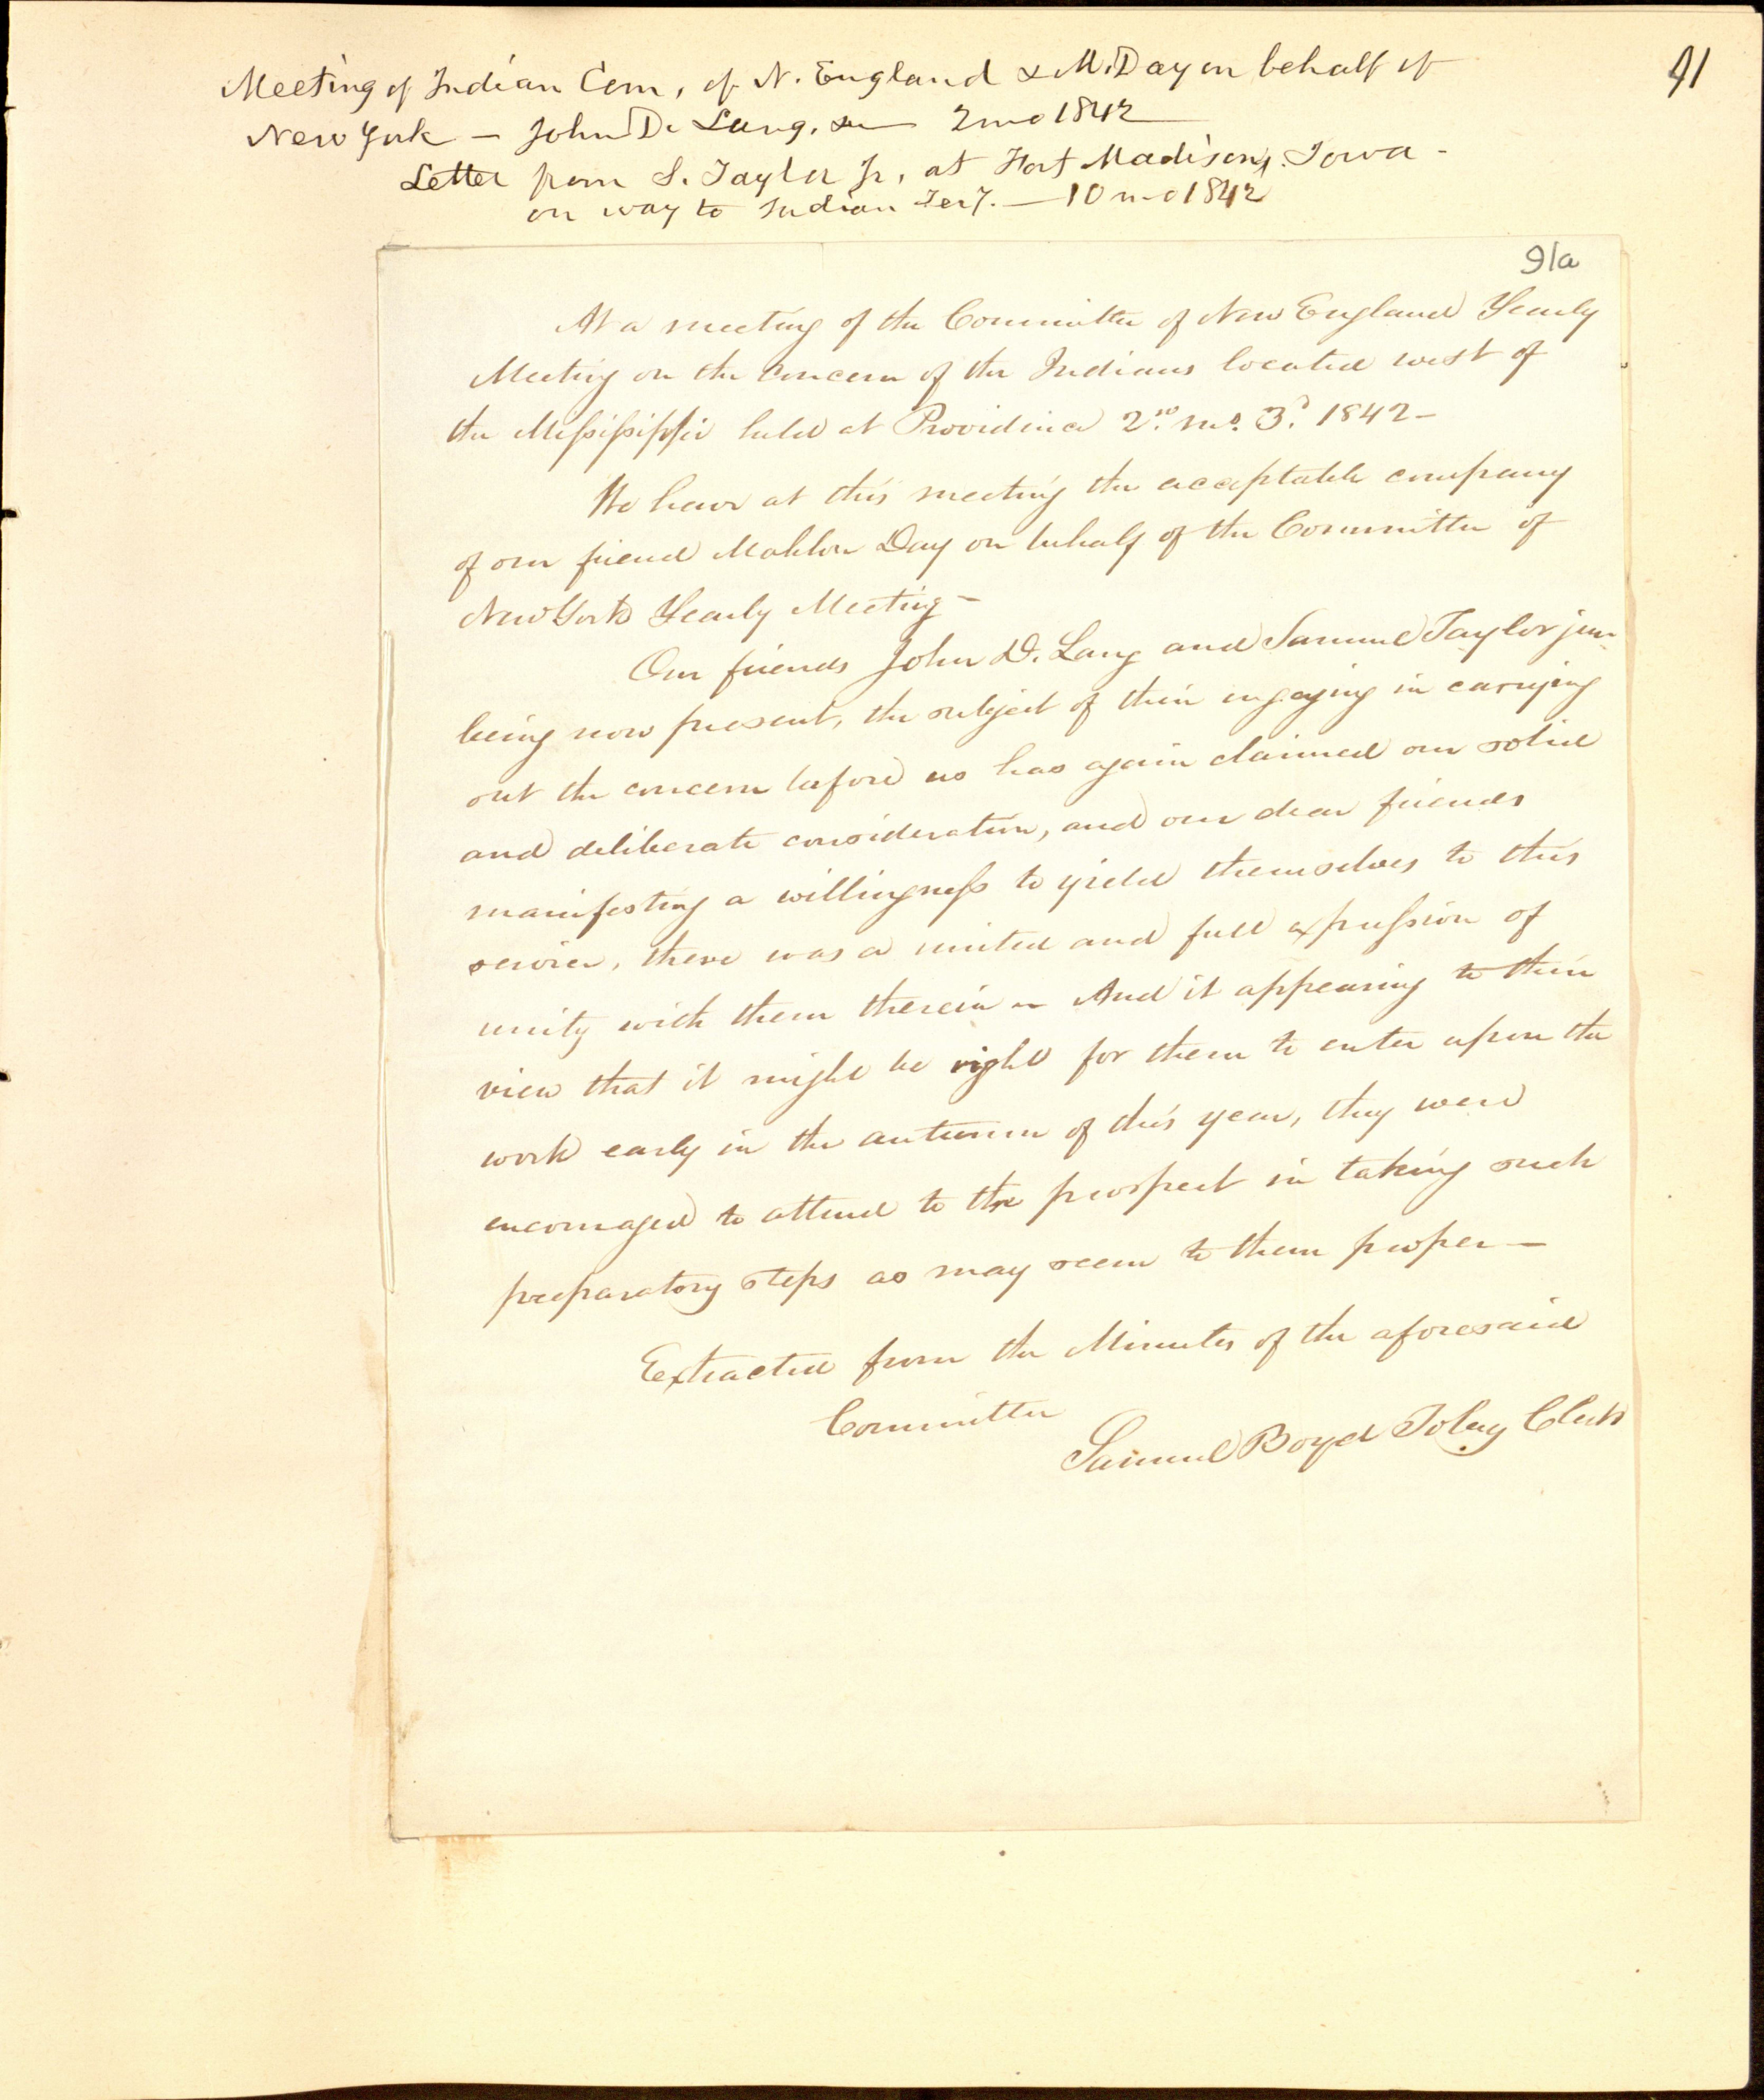 91
Meeting of Indian Com, of N. England & M. Day on behalf of
New York — John D. Lang, 2 mo 1842
Letter from S. Taylor Jr, at Fort Madison, Iowa -
on way to Indian Ter'y. — 10 mo 1842
91a
At a meeting of the Committee of New England Yearly
Meeting on the concern of the Indians located west of
the Mississippi held at Providence 2.nd mo. 3.d 1842 -
We have at this meeting the acceptable company
of our friend Mahlon Day on behalf of the Committee of
New York Yearly Meeting -
Our friends John D. Lang and Samuel Taylor jun.
being now present, the subject of their engaging in carrying
out the concern before us has again claimed our solid
and deliberate consideration, and our dear friends
manifesting a willingness to yield themselves to this
service, there was a united and full expression of
unity with them therein - And it appearing to their
view that it might be right for them to enter upon the
work early in the autumn of this year, they were
encouraged to attend to the prospect in taking such
preparatory steps as may seem to them proper —
Extracted from the Minutes of the aforesaid
Committee
Samuel Boyd Tobey Clerk